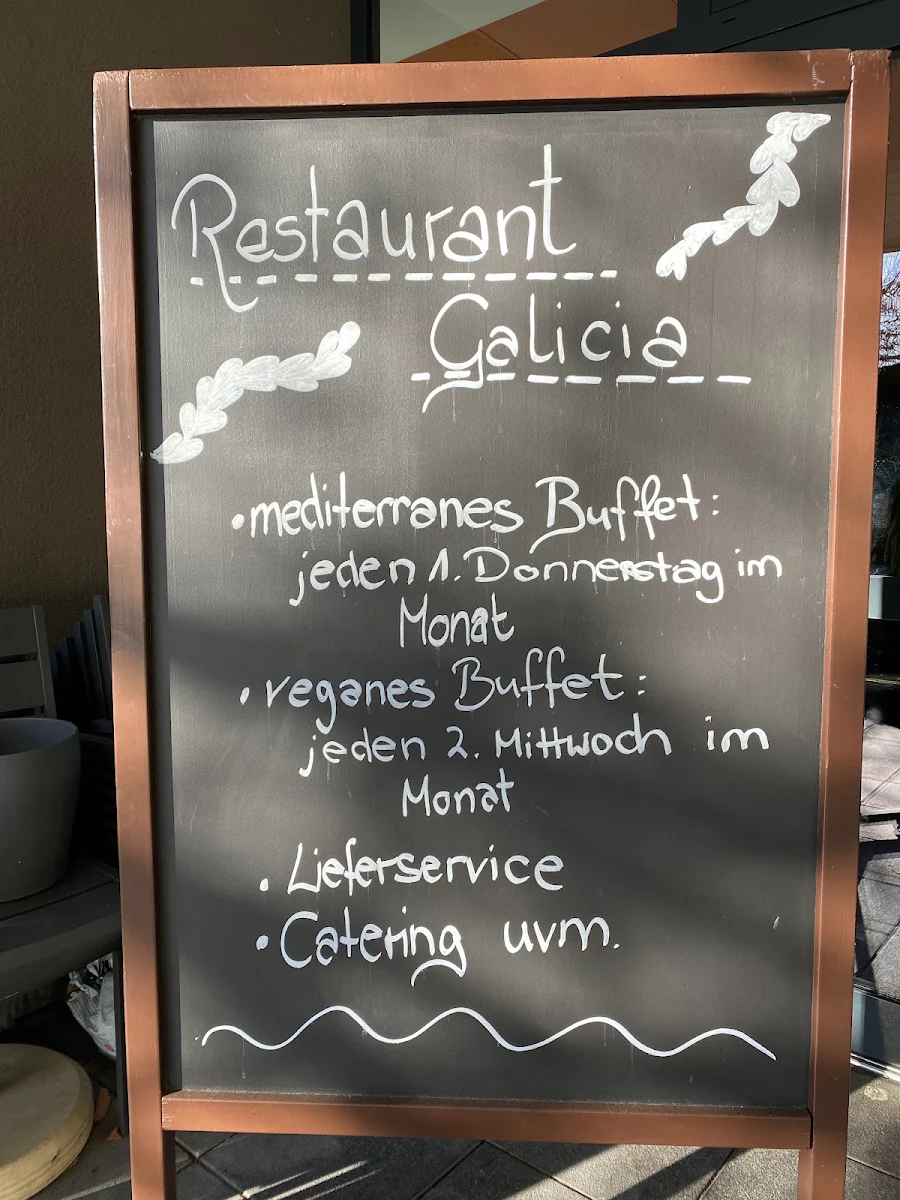 Restaurant
Galicia
• mediterranes Buffet:
jeden 1. Donnerstag im
Monat
• veganes Buffet:
jeden 2. Mittwoch im
Monat
• Lieferservice
• Catering uvm.